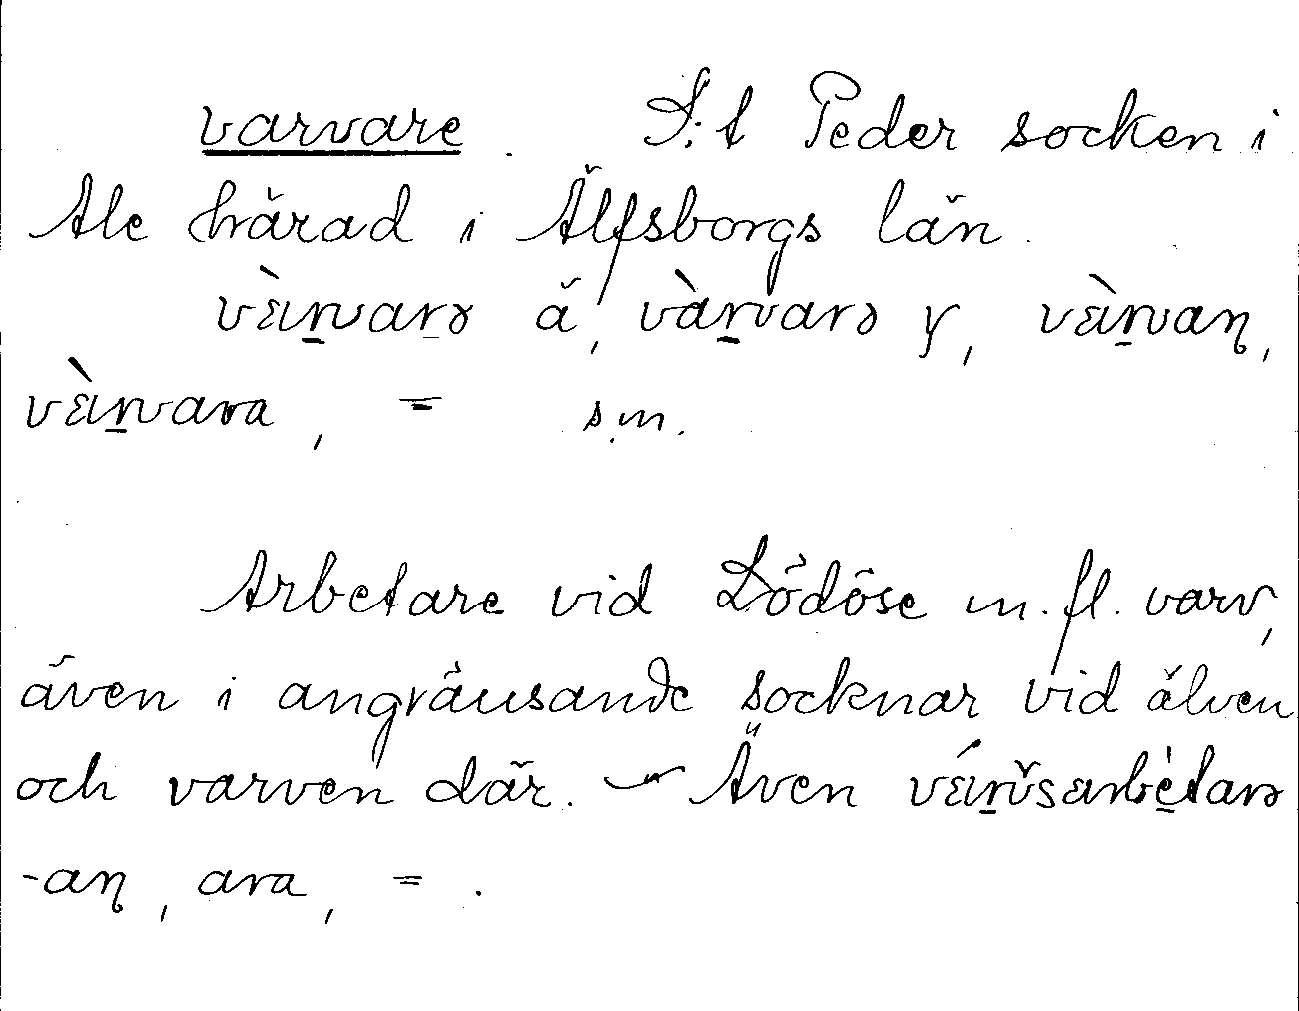 varvare. S:t Peder socken i
Ale härad i Älfsborgs län.
vàrvarə ä, vàrvarə y, vàrvaɳ,
vàrvara, = s.m.
Arbetare vid Lödöse m.fl. varv,
även i angränsande socknar vid älven
och varven där. — Även várvsarbètarə
-aɳ, ara, = .